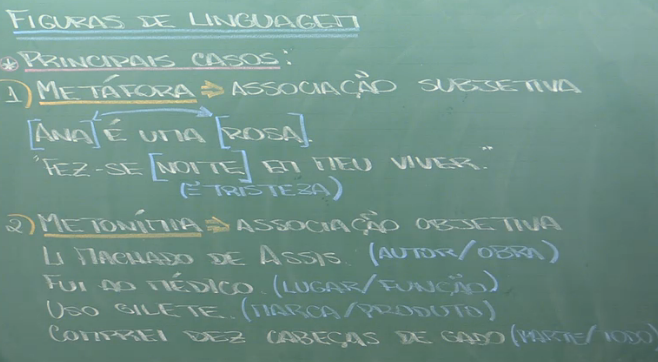 FIGURAS DE LINGUAGEM
* PRINCIPAIS CASOS:
1) METÁFORA ⇒ ASSOCIAÇÃO SUBJETIVA
[ANA] É UMA [ROSA].
"FEZ-SE [NOITE] EM MEU VIVER."
(= TRISTEZA)
2) METONÍMIA ⇒ ASSOCIAÇÃO OBJETIVA
LI MACHADO DE ASSIS. (AUTOR/OBRA)
FUI AO MÉDICO. (LUGAR/FUNÇÃO)
USO GILETE. (MARCA/PRODUTO)
COMPREI DEZ CABEÇAS DE GADO (PARTE/TODO)